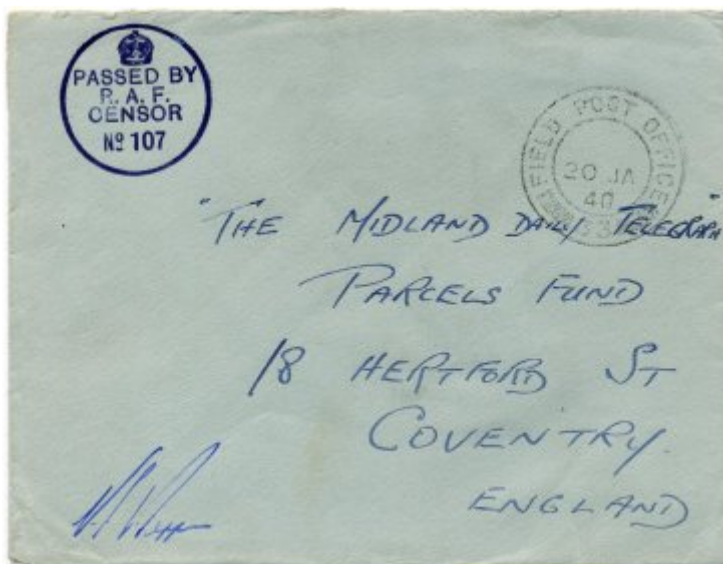 PASSED BY
R. A. F.
CENSOR
Nº 107
FIELD POST OFFICE
20 JA
40
"THE MIDLAND DAILY TELEGRAPH"
PARCELS FUND
18 HERTFORD ST
COVENTRY.
ENGLAND